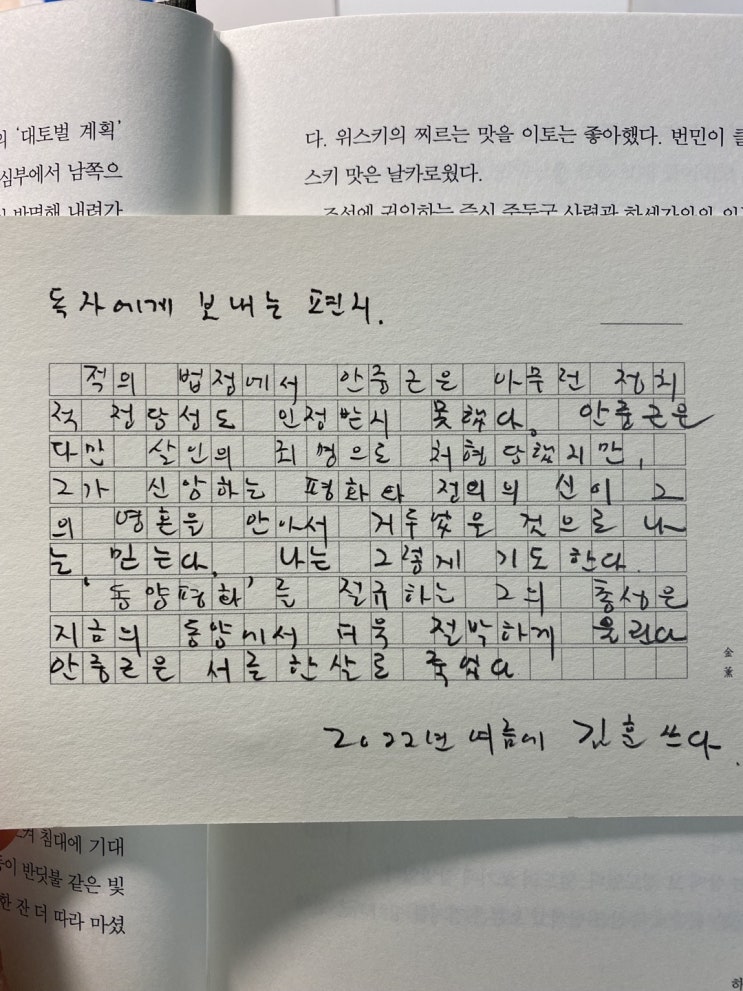 의 '대토벌 계획'
심부에서 남쪽으
다. 위스키의 찌르는 맛을 이토는 좋아했다. 번민이 클
스키 맛은 날카로웠다.
독자에게 보내는 편지.
적의 법정에서 안중근은 아무런 정치
적 정당성도 인정받지 못했다. 안중근은
다만 살인의 죄명으로 처형당했지만,
그가 신앙하는 평화와 정의의 신이 그
의 영혼을 안아서 거두었을 것으로 나
는 믿는다. 나는 그렇게 기도한다.
'동양평화'를 절규하는 그의 총성은
지금의 동양에서 더욱 절박하게 울린다
안중근은 서른한살로 죽었다
金薰
2022년 여름에 김훈 쓰다.
겨 침대에 기대
등이 반딧불 같은 빛
한 잔 더 따라 마셨
하